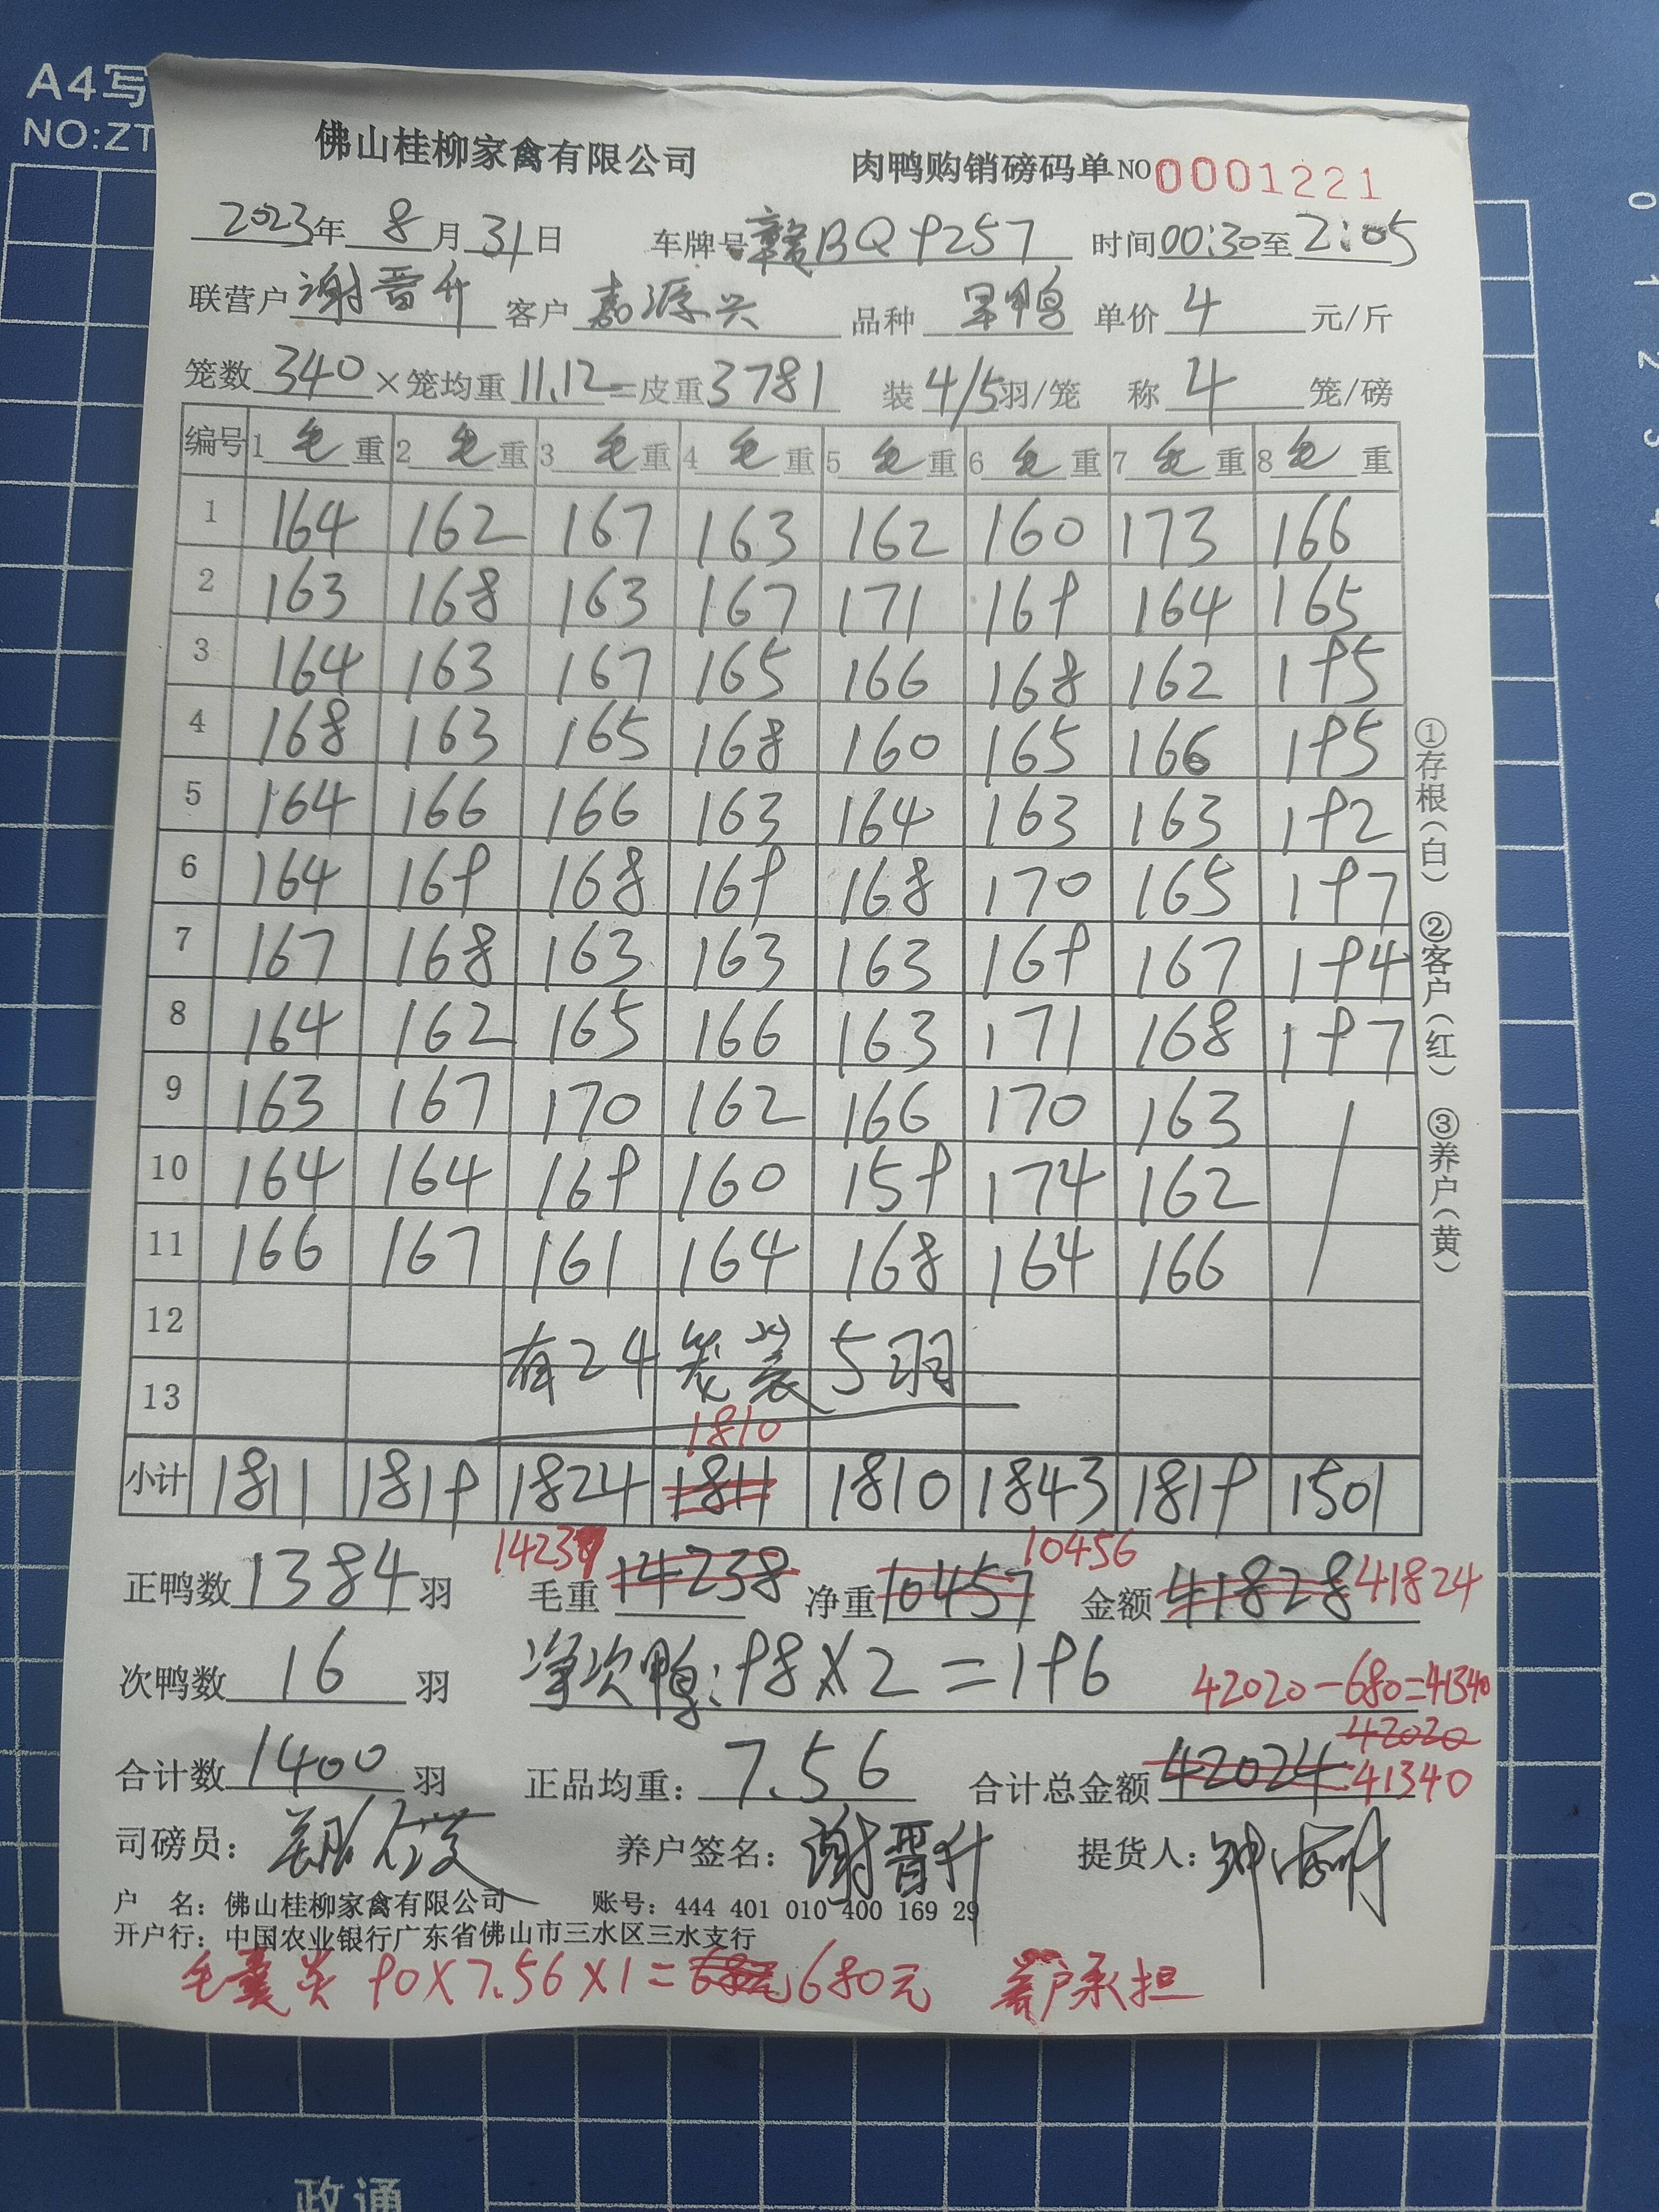 A4写
NO:ZT
佛山桂柳家禽有限公司 肉鸭购销磅码单 NO 0001221
2023年 8月31日 车牌号赣BQ9257 时间00:30至2:05
联营户谢晋升 客户嘉源兴 品种 单价4元/斤
笼数340×笼均重11.12=皮重3781 装4/5羽/笼 称4笼/磅
编号 1毛重 2毛重 3毛重 4毛重 5毛重 6毛重 7毛重 8毛重
1 164 162 167 163 162 160 173 166
2 163 168 163 167 171 169 164 165
3 164 163 167 165 166 168 162 195
4 168 163 165 168 160 165 166 195
5 164 166 166 163 164 163 163 192
6 164 169 168 169 168 170 165 197
7 167 168 163 163 163 169 167 194
8 164 162 165 166 163 171 168 197
9 163 167 170 162 166 170 163
10 164 164 169 160 159 174 162
11 166 167 161 164 168 164 166
12
有24笼装5羽
13
1810
小计 1811 1819 1824 1811 1810 1843 1819 1501
14237 10456
正鸭数1384羽 毛重14238 净重10457 金额41828 41824
次鸭数16羽 净次鸭:98×2=196 42020-680=41340
42020
合计数1400羽 正品均重:7.56 合计总金额42024 41340
司磅员: 养户签名:谢晋升 提货人:
户 名:佛山桂柳家禽有限公司 账号:444 401 010 400 169 29
开户行:中国农业银行广东省佛山市三水区三水支行
毛囊炎 90×7.56×1=680元 养户承担
①存根(白) ②客户(红) ③养户(黄)
政通
0
1
2
3
4